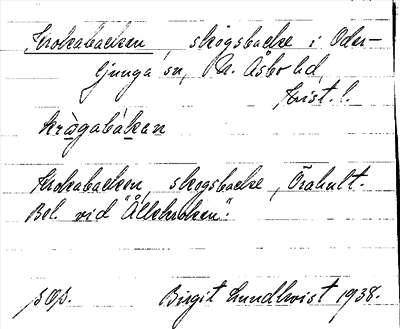 Krokabacken, skogsbacke i Oder-
ljunga sn, N. Åsbo hd,
Krist. l.
krògabákan
Krokabacken, skogsbacke, Örahult.
Bel. vid "Ållekroken".
Birgit Lundkvist 1938.